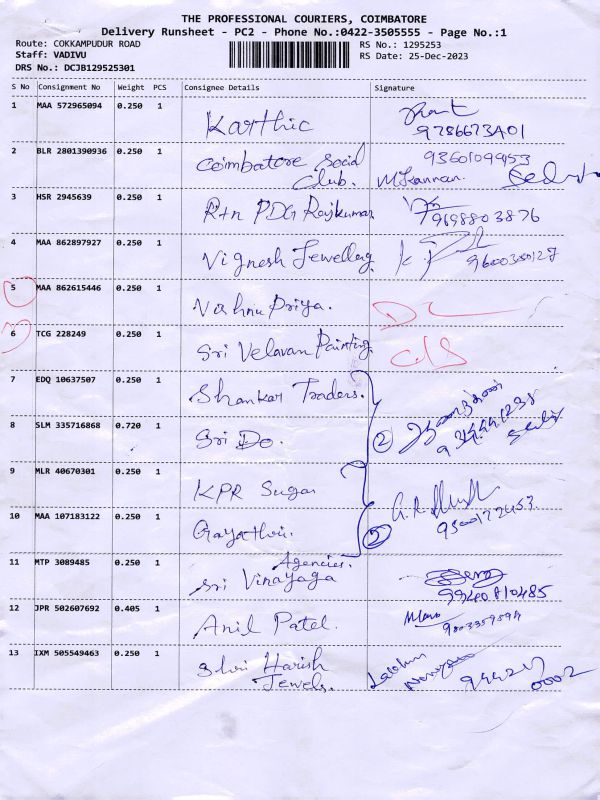 THE PROFESSIONAL COURIERS, COIMBATORE
Delivery Runsheet - PC2 - Phone No.:0422-3505555 - Page No.:1
Route: COKKAMPUDUR ROAD RS No.: 1295253
Staff: VADIVU RS Date: 25-Dec-2023
DRS No.: DCJB129525301
S No Consignment No Weight PCS Consignee Details Signature
1 MAA 572965094 0.250 1 Karthic
9786673A01
2 BLR 2801390936 0.250 1 Coimbatore Social 9360109953
Club. M.Kannan.
3 HSR 2945639 0.250 1 Rtn PDG Rajkumar 9698803876
4 MAA 862897927 0.250 1 Vignesh Jewellery
5 MAA 862615446 0.250 1 Vishnu Priya. DL
6 TCG 228249 0.250 1 Sri Velavan Painting.
7 EDQ 10637507 0.250 1 Shankar Traders.
8 SLM 335716868 0.720 1 Sri Do. 2
9 MLR 40670301 0.250 1 KPR Sugar
10 MAA 107183122 0.250 1 Gayathri.
11 MTP 3089485 0.250 1 Agencies.
Sri Vinayaga
9940810485
12 JPR 502607692 0.405 1 Anil Patel.
13 IXM 505549463 0.250 1 Shri Harish Lakshmi
Jewels. Narayan 0002